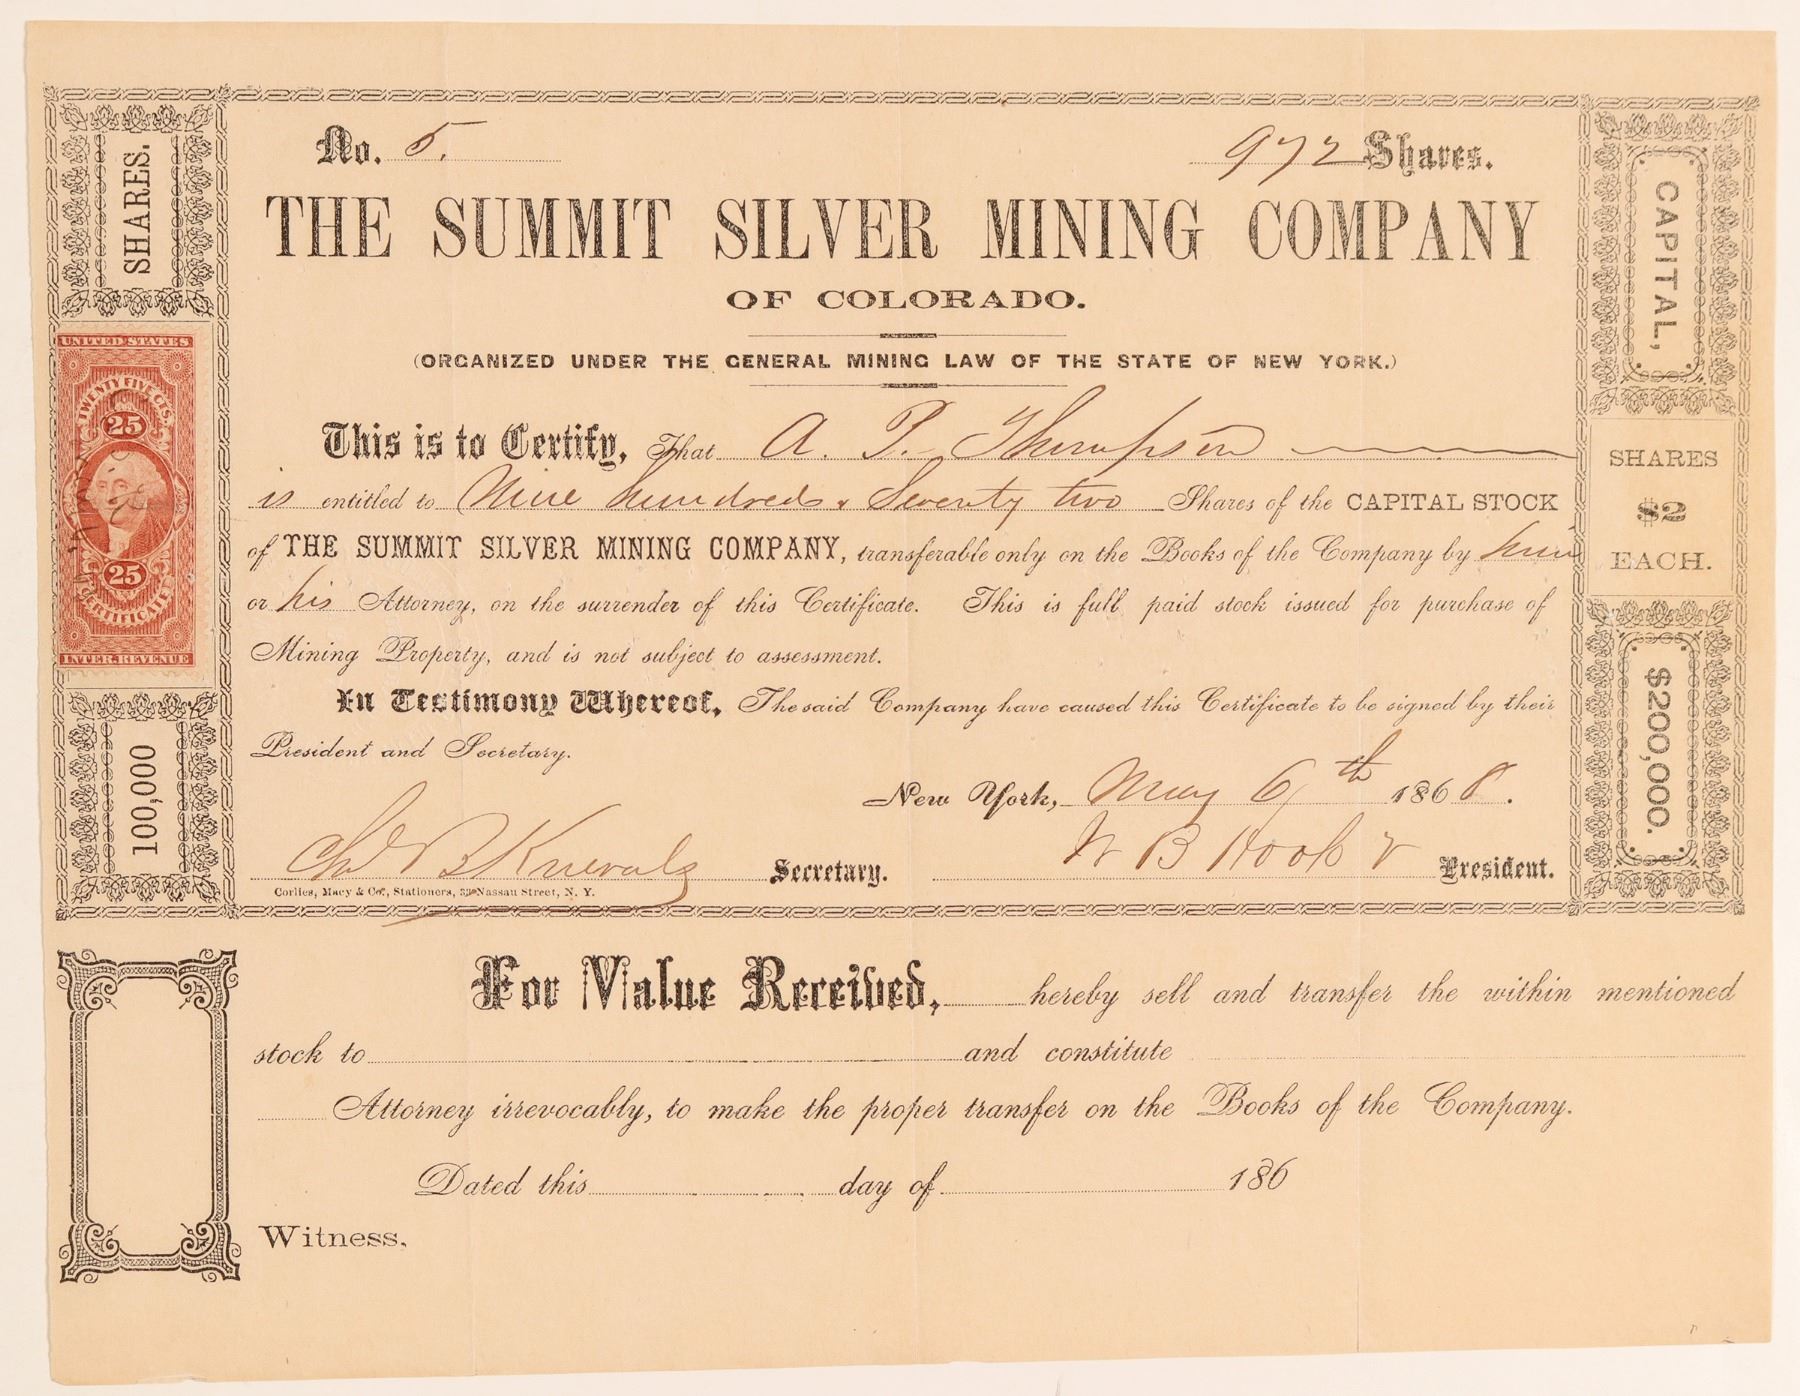 No. 5.
972 Shares.
THE SUMMIT SILVER MINING COMPANY
OF COLORADO.
(ORGANIZED UNDER THE GENERAL MINING LAW OF THE STATE OF NEW YORK.)
This is to Certify, That A. P. Thompson
is entitled to Nine hundred & Seventy two Shares of the CAPITAL STOCK
of THE SUMMIT SILVER MINING COMPANY, transferable only on the Books of the Company by him
or his Attorney, on the surrender of this Certificate. This is full paid stock issued for purchase of
Mining Property, and is not subject to assessment.
In Testimony Whereof, The said Company have caused this Certificate to be signed by their
President and Secretary.
New York, May 6th 1868.
Chas B Knevals Secretary.
W B President.
Corlies, Macy & Co., Stationers, Nassau Street, N. Y.
SHARES.
100,000
UNITED STATES
TWENTY FIVE CTS.
25
25
CERTIFICATE
INTER. REVENUE
CAPITAL,
SHARES
$2
EACH.
$200,000.
For Value Received, hereby sell and transfer the within mentioned
stock to and constitute
Attorney irrevocably, to make the proper transfer on the Books of the Company.
Dated this day of 186
Witness.